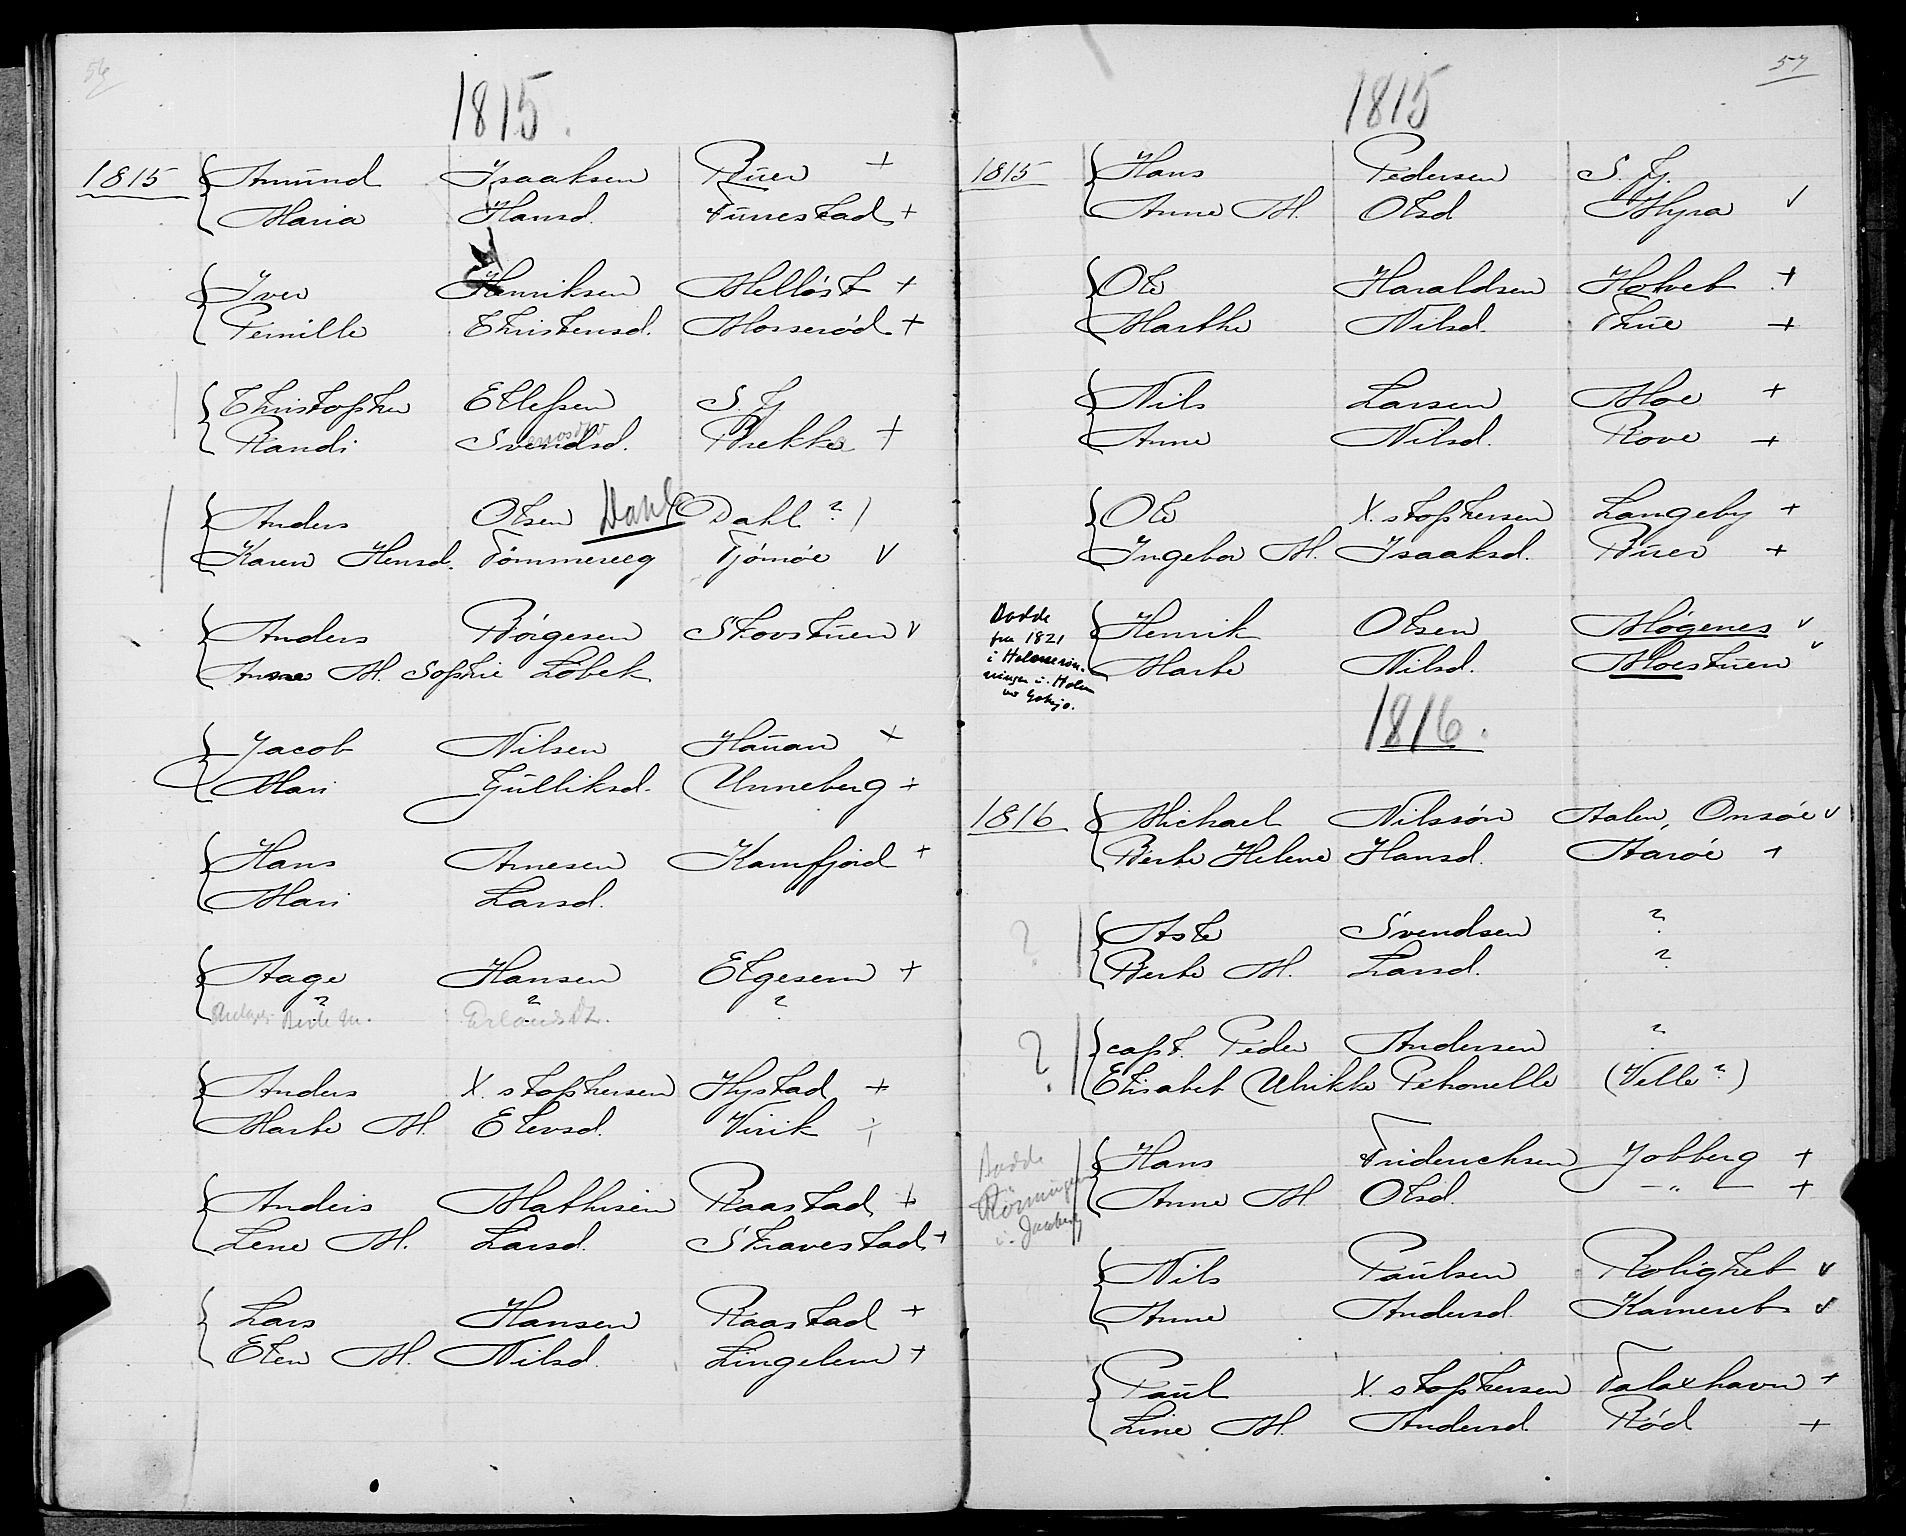 56
1815.
1815 Amund Isaaksen Buer +
Maria Hansd. Furrestad +
Iver Henriksen Melløst +
Pernille Christensd. Mosserød +
Christopher Ellefsen S. Fj
Randi Svendsd. Brekke +
Anders Olsen Dahl Dahl ?
Karen Hensd. Tømmereeg Tjømøe v
Anders Børgesen Skovstuen v
Anne M. Sophie Løbek
Jacob Nilsen Hauan +
Mari Gulliksd. Unneberg +
Hans Arnesen Kamfjord +
Mari Larsd.
Aage Hansen Elgesem +
? ? ?
Berte M. Erlandsdt.
Anders X.stophersen Hystad +
Marte M. Elevsd. Virik +
Anders Mathisen Raastad +
Lene M. Larsd. Skravestad +
Lars Hansen Raastad +
Elen M. Nilsd. Lingelem +
57
1815
1815 Hans Pedersen S. Fj.
Anne M. Olsd Myra v
Ole Haraldsen Holvet +
Marthe Nilsd. Thue +
Nils Larsen Moe +
Anne Nilsd. Rove +
Ole X.stophersen Langeby +
Ingebor M. Isaaksd. Buer +
Bodde
fra 1821
i Holmerøn-
ningen u. Holm
Henrik Olsen Møgenes v
Marte Nilsd. Moestuen v
1816.
1816 Michael Nilssøn Aalen, Onsøe v
Berte Helene Hansd. Aarøe +
? Asle Svendsen ?
Berte M. Larsd. ?
? capt. Peder Andersen ?
Elisabet Ulrikke Petronelle (Velle ?)
Bodde
Rønningen
u. Jaaberg
Hans Friderichsen Jobberg +
Anne M. Olsd. — " — +
Nils Paulsen Rolighet v
Anne Andersd. Kamerets v
Paul X.stophersen Valøxhavn +
Line M. Andersd. Rød +